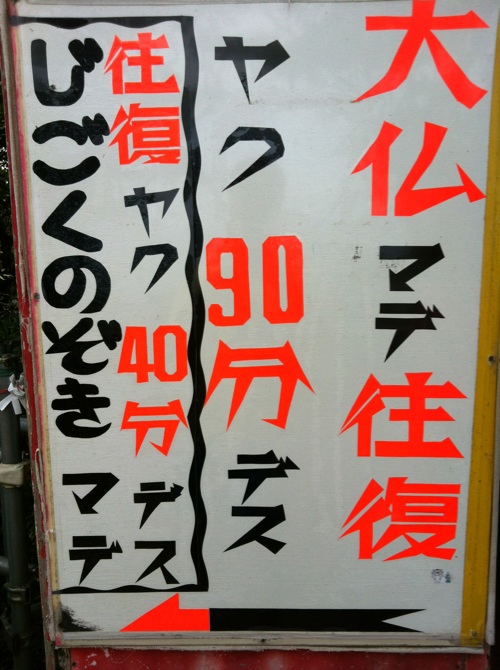 大仏マデ往復
ヤク90分デス
じごくのぞきマデ
往復ヤク40分デス